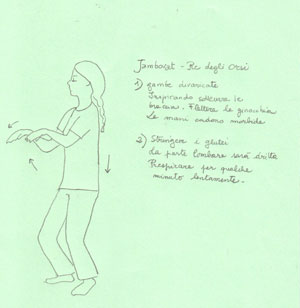 Jambacet - Re degli Orsi
1) gambe divaricate
Inspirando solleva le
braccia. Flettere le ginocchia
Le mani vanno morbide
2) Stringere i glutei
la parte lombare sarà dritta
Respirare per qualche
minuto lentamente.